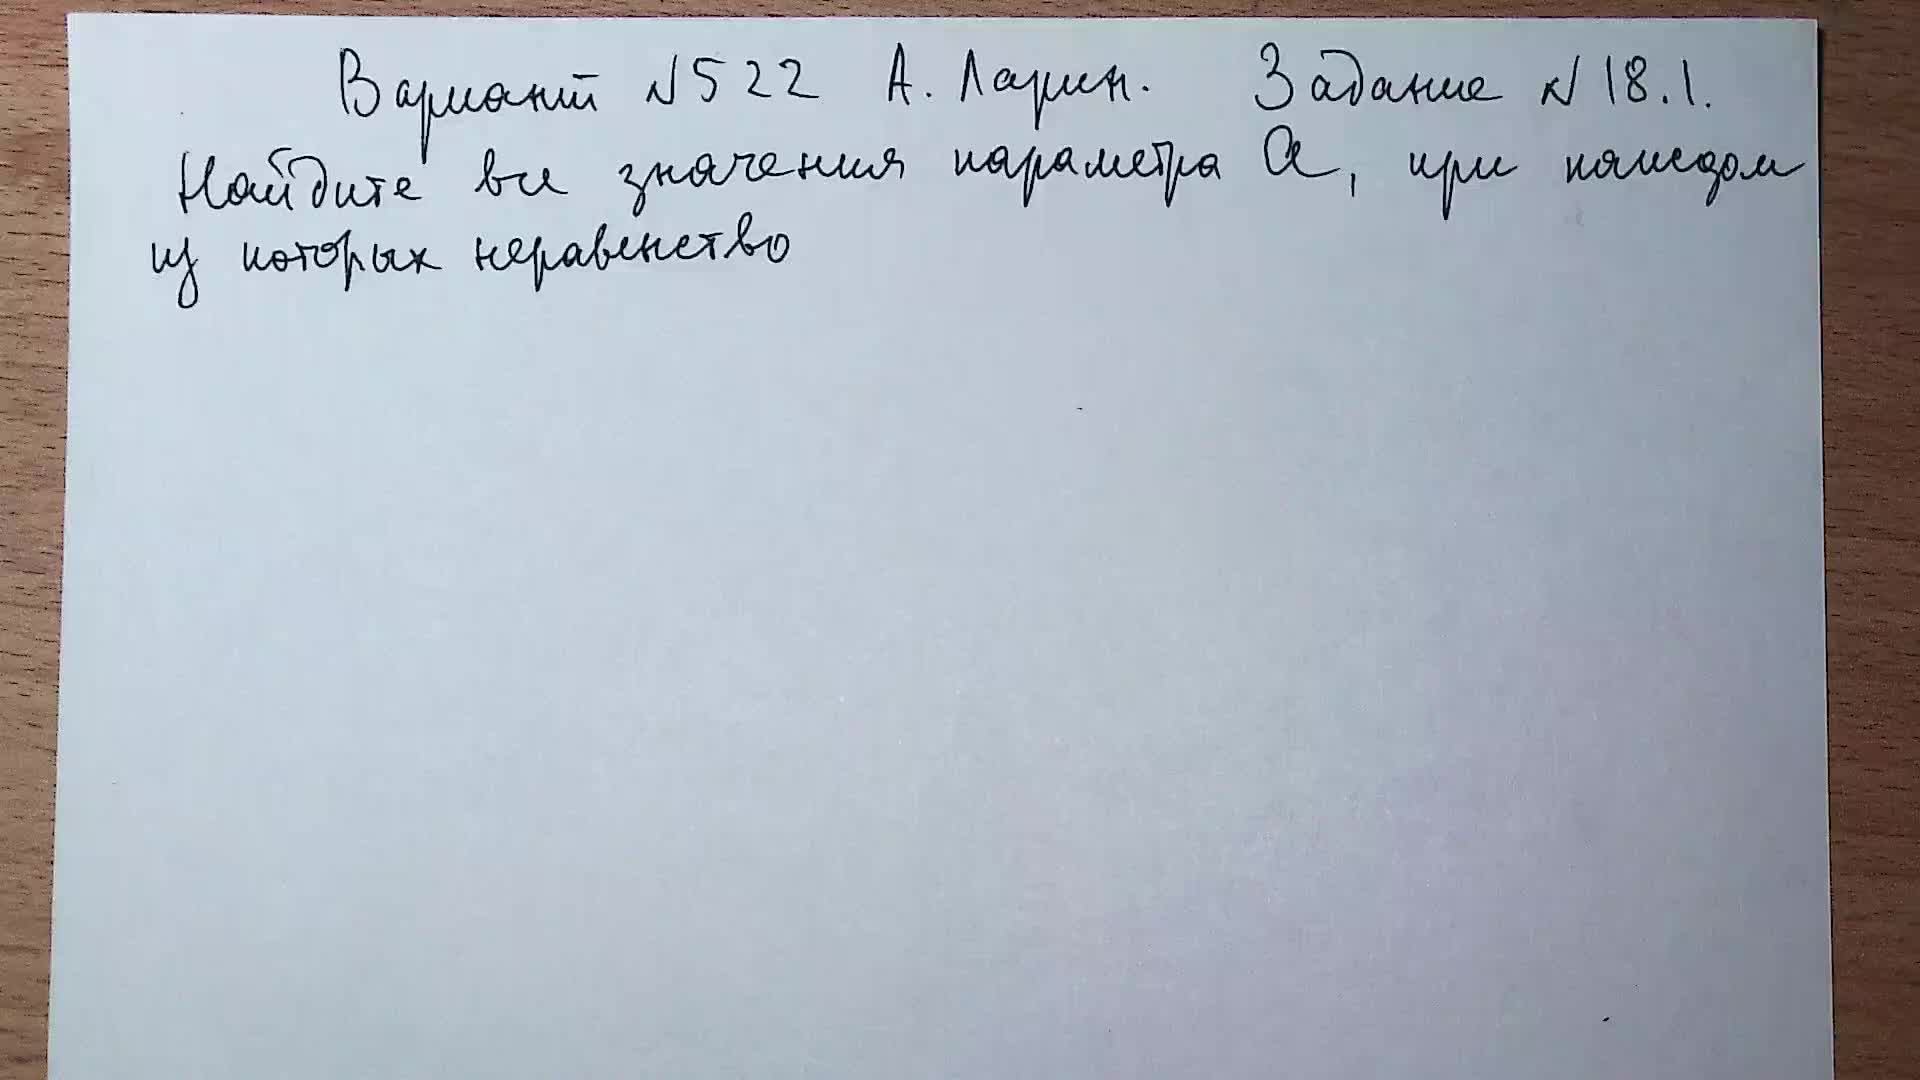 Вариант №522 А. Ларин. Задание №18.1.
Найдите все значения параметра a, при каждом
из которых неравенство